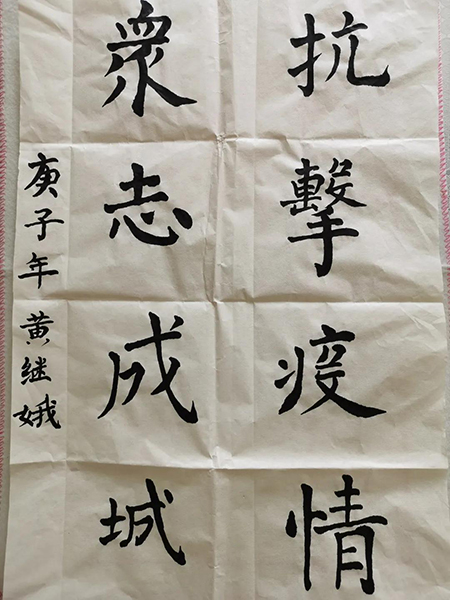 抗擊疫情
衆志成城
庚子年 黄继娥